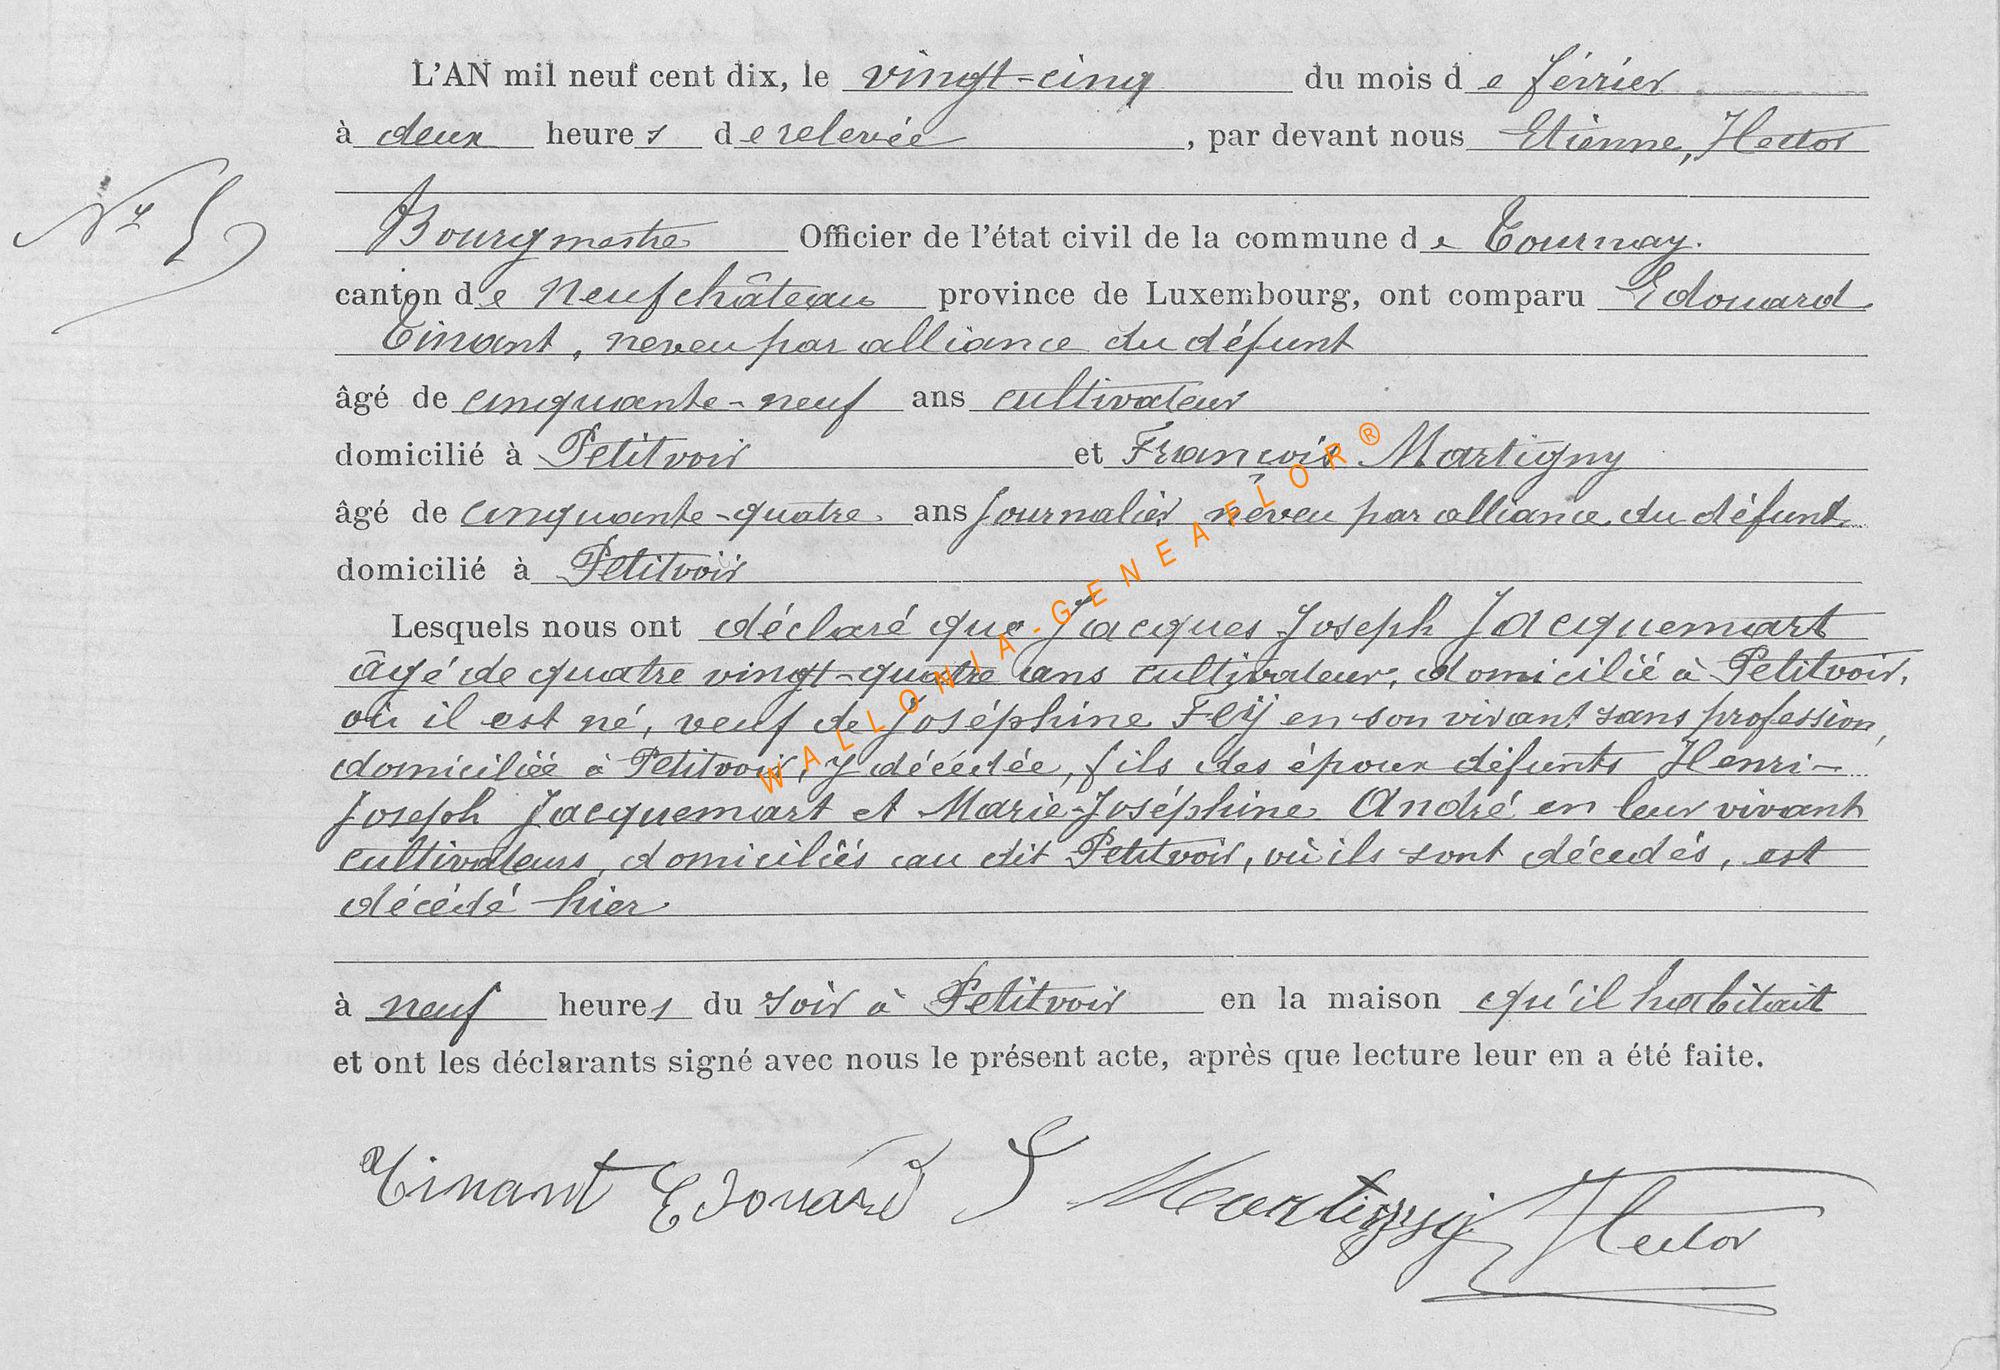 L'AN mil neuf cent dix, le vingt-cinq du mois de février
à deux heures de relevée, par devant nous Etienne, Hector
Nº 5
Bourgmestre Officier de l'état civil de la commune de Tournay.
canton de Neufchâteau province de Luxembourg, ont comparu Edouard
Tinant, neveu par alliance du défunt
âgé de cinquante-neuf ans cultivateur
domicilié à Petitvoir et François Martigny
âgé de cinquante-quatre ans journalier neveu par alliance du défunt
domicilié à Petitvoir
Lesquels nous ont déclaré que Jacques Joseph Jacquemart
âgé de quatre vingt-quatre ans cultivateur, domicilié à Petitvoir,
où il est né, veuf de Joséphine Fly en son vivant sans profession,
domiciliée à Petitvoir, y décédée, fils des époux défunts Henri-
Joseph Jacquemart et Marie-Joséphine André en leur vivant
cultivateurs, domiciliés au dit Petitvoir, où ils sont décédés, est
décédé hier
à neuf heures du soir à Petitvoir en la maison qu'il habitait
et ont les déclarants signé avec nous le présent acte, après que lecture leur en a été faite.
Tinant Edouard F Martigny Hector
WALLONIA-GENEAFLOR®